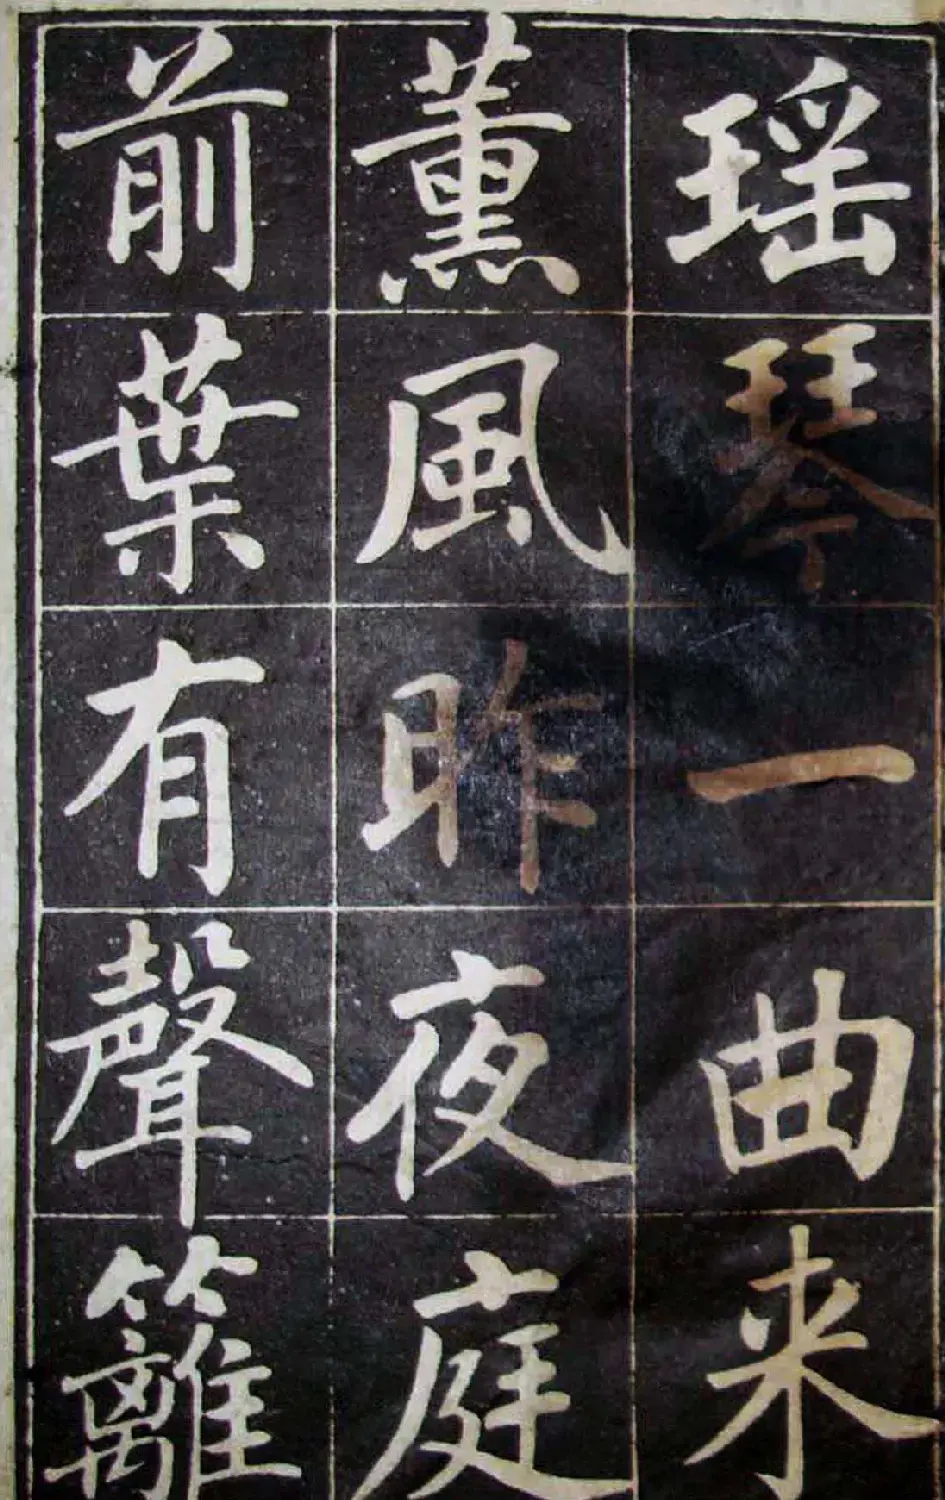 瑶琴一曲来
薰風昨夜庭
前葉有聲籬